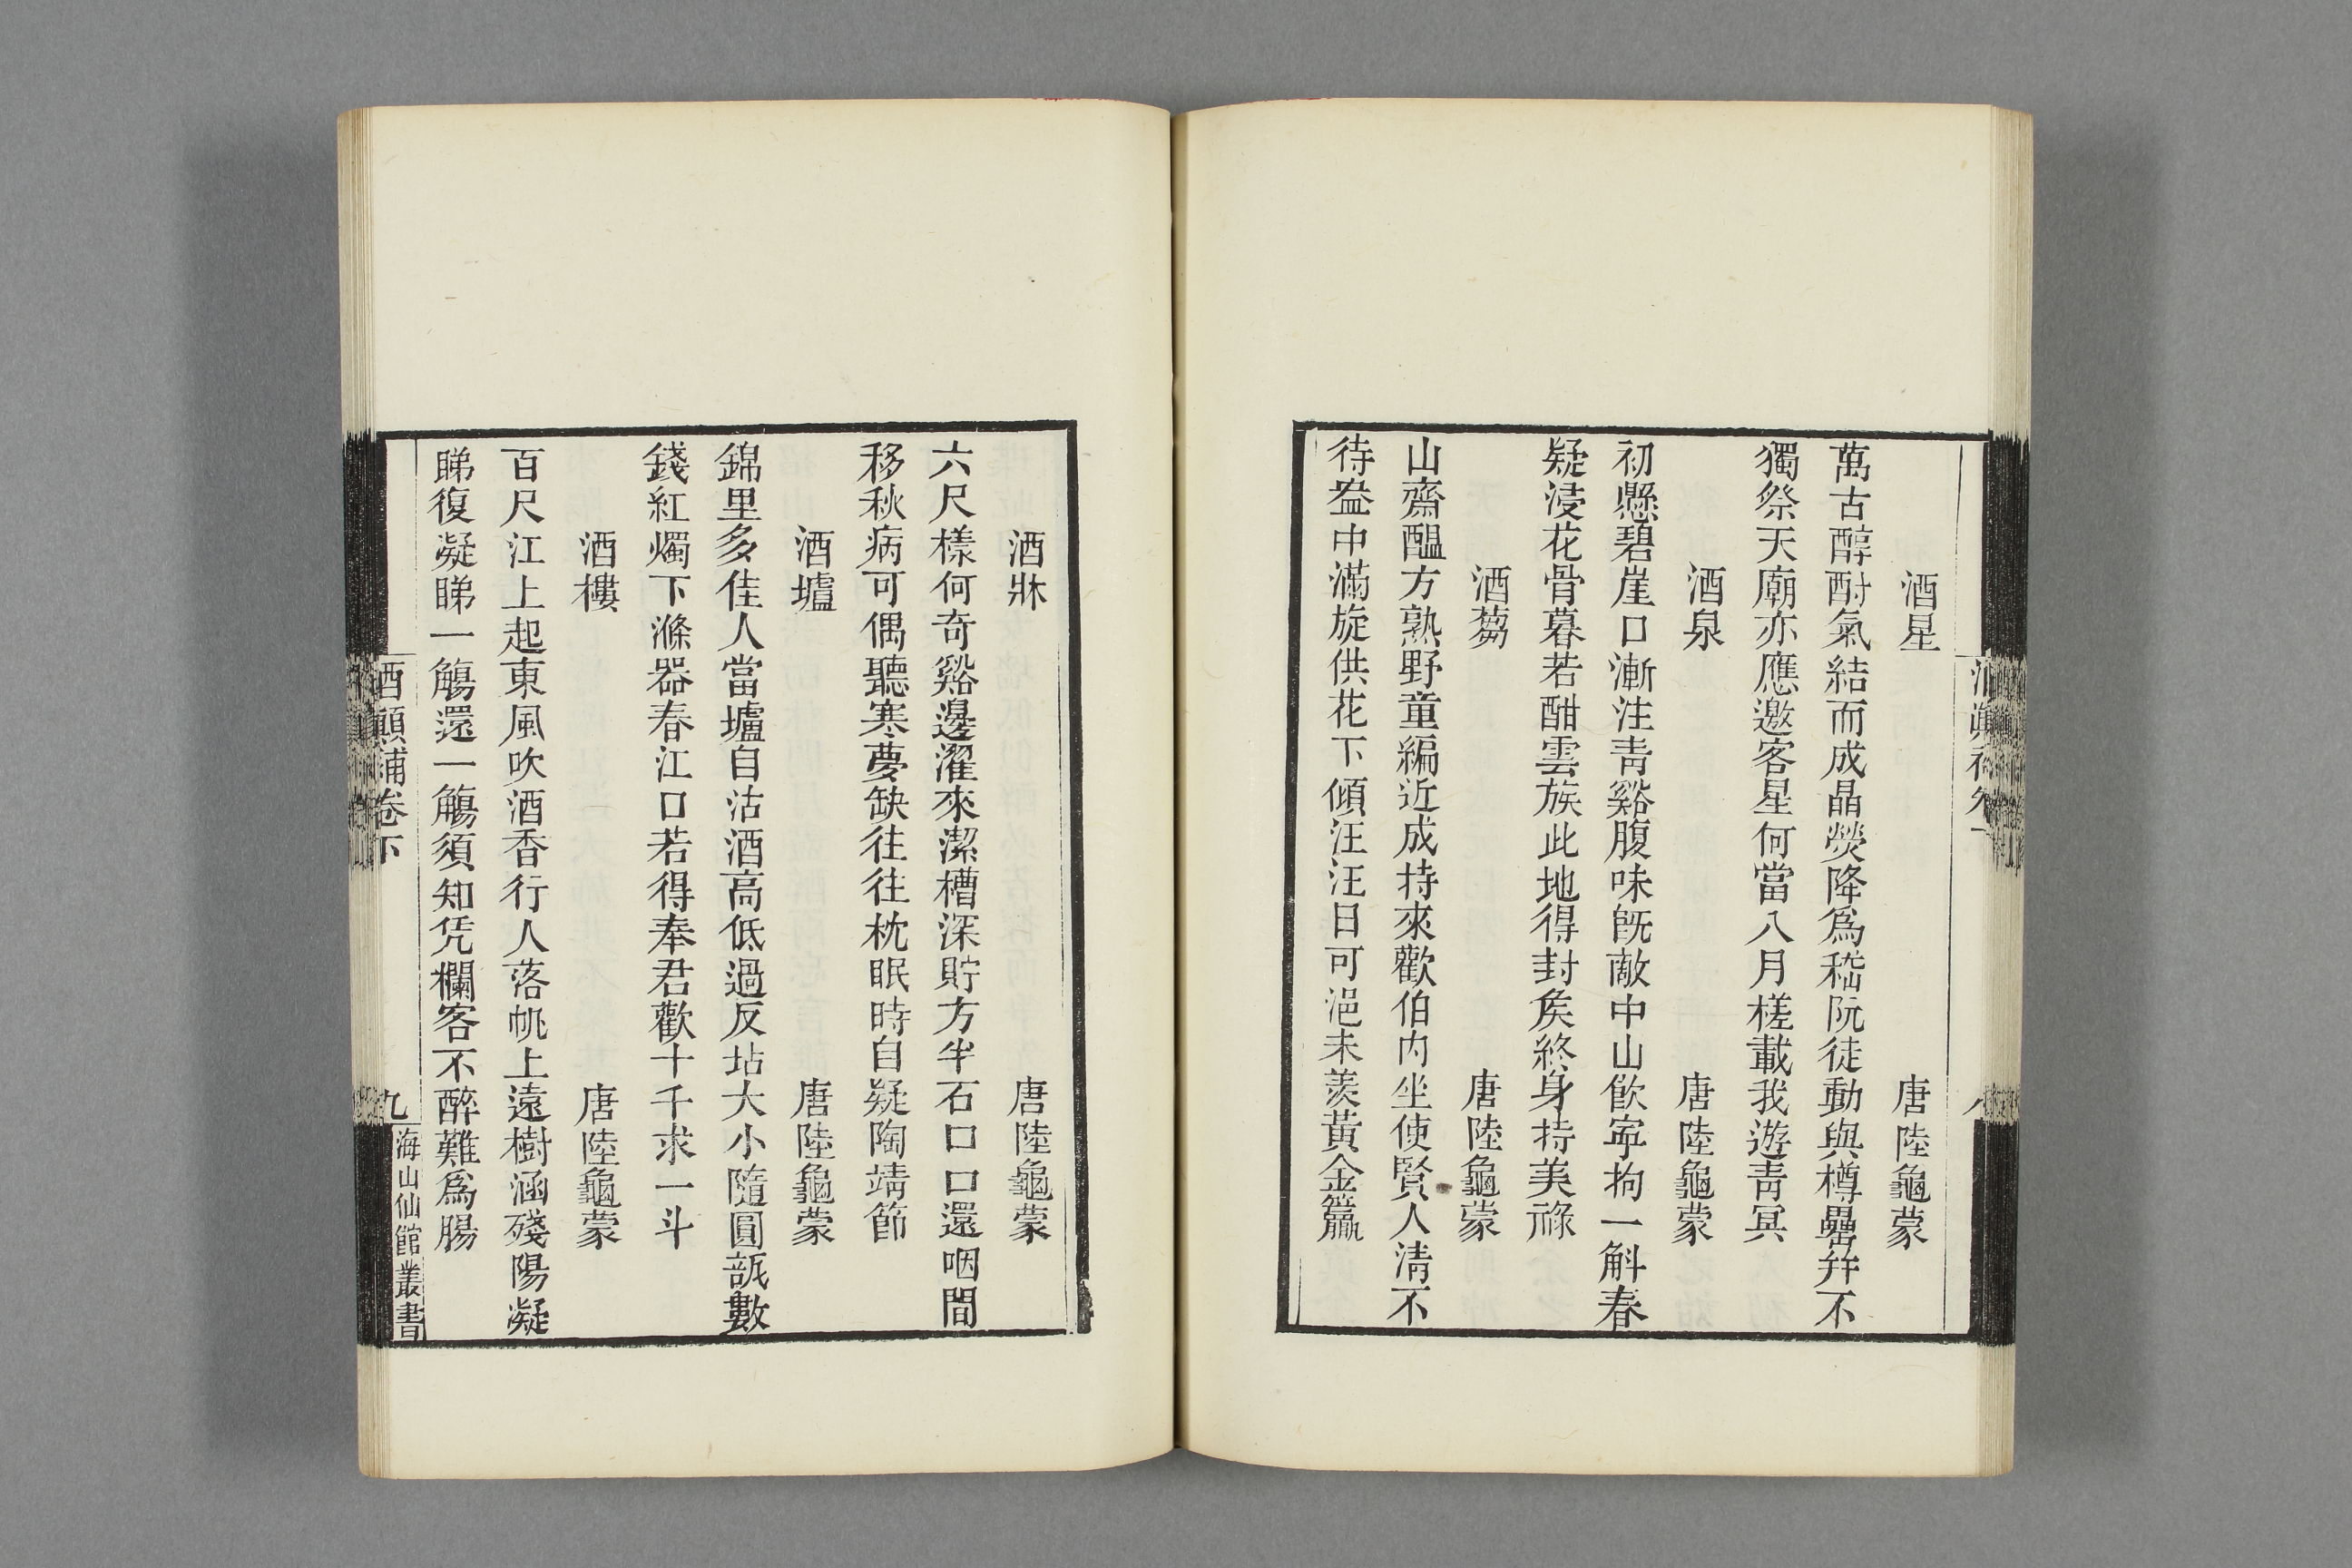 酒星　唐陸龜蒙
萬古醇酎氣結而成晶熒降爲嵇阮徒動與樽罍幷不
獨祭天廟亦應邀客星何當八月槎載我遊青冥
酒泉　唐陸龜蒙
初懸碧崖口漸注青谿腹味旣敵中山飮寧拘一斛春
疑浸花骨暮若酣雲族此地得封矦終身持美祿
酒蒭　唐陸龜蒙
山齋醖方熟野童編近成持來歡伯內坐使賢人淸不
待盎中滿旋供花下傾汪汪日可挹未羨黃金籯
酒牀　唐陸龜蒙
六尺樣何奇谿邊濯來潔槽深貯方半石口口還咽閒
移秋病可偶聽寒夢缺往往枕眠時自疑陶靖節
酒壚　唐陸龜蒙
錦里多佳人當壚自沽酒高低過反坫大小隨圓瓿數
錢紅燭下滌器春江口若得奉君歡十千求一斗
酒樓　唐陸龜蒙
百尺江上起東風吹酒香行人落帆上遠樹涵殘陽凝
睇復凝睇一觴還一觴須知凭欄客不醉難爲腸
酒顛補卷下
九
海山仙館叢書